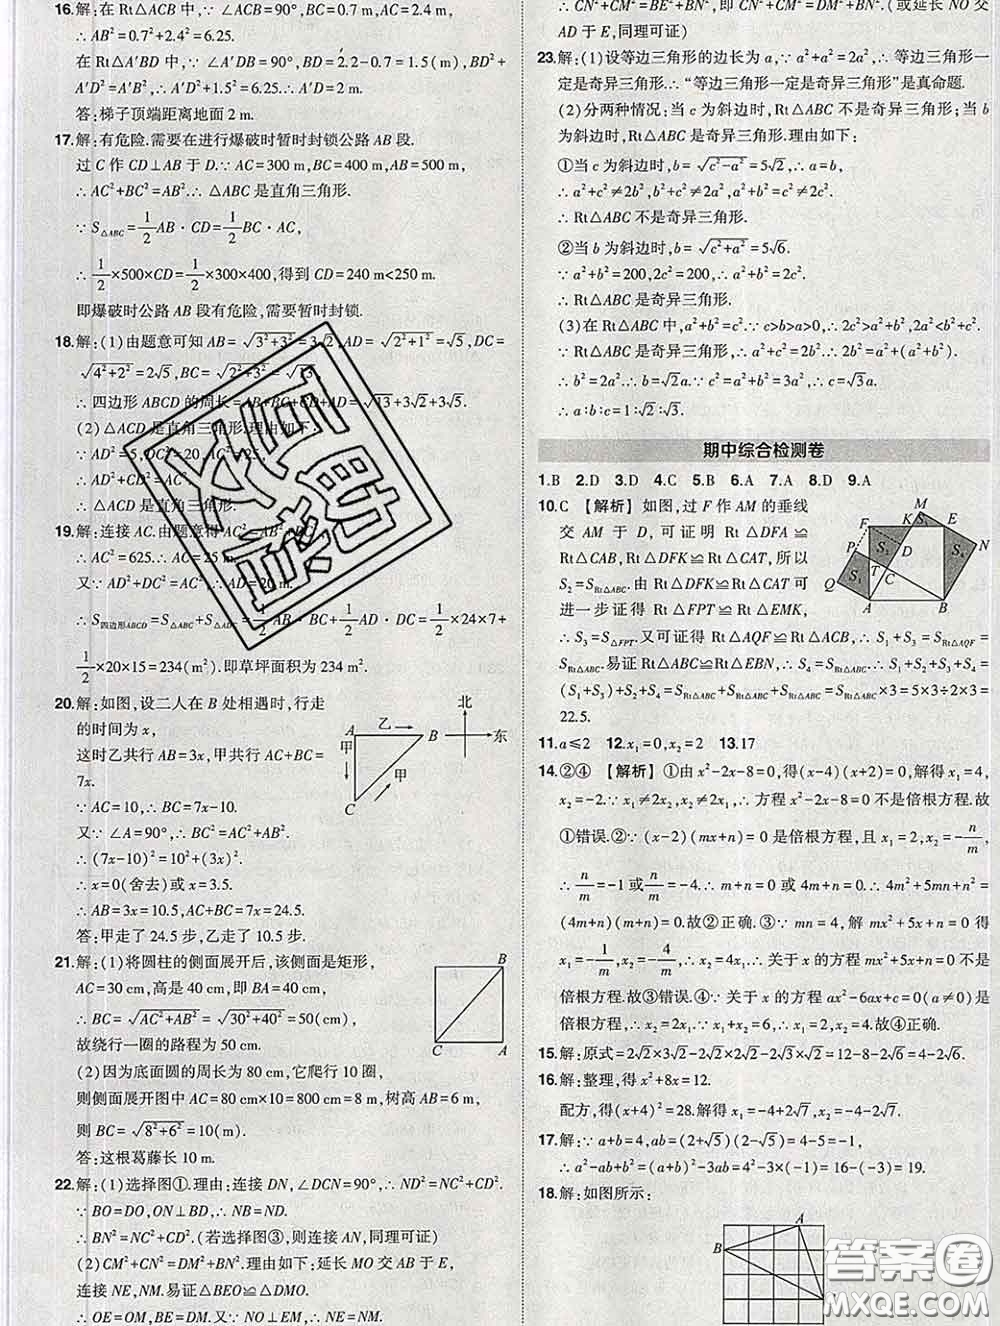 16.解:在 Rt△ACB 中,∵ ∠ACB=90°,BC=0.7 m,AC=2.4 m,
∴ AB²=0.7²+2.4²=6.25.
在 Rt△A′BD 中,∵ ∠A′DB=90°,BD=2.2-0.7=1.5(m),BD²+
A′D²=A′B²,∴ A′D²+1.5²=6.25.∴ A′D=2 m.
答:梯子顶端距离地面 2 m.
17.解:有危险.需要在进行爆破时暂时封锁公路 AB 段.
过 C 作 CD⊥AB 于 D.∵ AC=300 m,BC=400 m,AB=500 m,
∴ AC²+BC²=AB².∴ △ABC 是直角三角形.
∵ S△ABC=1/2 AB·CD=1/2 BC·AC,
∴ 1/2×500×CD=1/2×300×400,得到 CD=240 m<250 m.
即爆破时公路 AB 段有危险,需要暂时封锁.
18.解:(1)由题意可知 AB=√(3²+3²)=3√2,AD=√(2²+1²)=√5,DC=
√(4²+2²)=2√5,BC=√13,
∴ 四边形 ABCD 的周长=AB+BC+CD+AD=√13+3√2+3√5.
(2)△ACD 是直角三角形.理由如下:
∵ AD²=5,DC²=20,AC²=25,
∴ AD²+DC²=AC².
∴ △ACD 是直角三角形.
19.解:连接 AC.由题意得
∴ AC²=625.∴ AC=25 m.
又∵ AD²+DC²=AC²,∴ AD=20 m.
∴ S四边形ABCD=S△ABC+S△ADC=1/2 AB·BC+1/2 AD·DC=1/2×24×7+
1/2×20×15=234(m²).即草坪面积为 234 m².
20.解:如图,设二人在 B 处相遇时,行走
的时间为 x,
这时乙共行 AB=3x,甲共行 AC+BC=
7x.
∵ AC=10,∴ BC=7x-10.
又∵ ∠A=90°,∴ BC²=AC²+AB².
∴ (7x-10)²=10²+(3x)².
∴ x=0(舍去)或 x=3.5.
∴ AB=3x=10.5,AC+BC=7x=24.5.
答:甲走了 24.5 步,乙走了 10.5 步.
北
东
乙
甲
甲
A
B
C
21.解:(1)将圆柱的侧面展开后,该侧面是矩形,
AC=30 cm,高是 40 cm,即 BA=40 cm,
∴ BC=√(AC²+AB²)=√(30²+40²)=50(cm),
故绕行一圈的路程为 50 cm.
(2)因为底面圆的周长为 80 cm,它爬行 10 圈,
则侧面展开图中 AC=80 cm×10=800 cm=8 m,树高 AB=6 m,
则 BC=√(8²+6²)=10(m).
答:这根葛藤长 10 m.
B
C
A
22.解:(1)选择图①.理由:连接 DN,∠DCN=90°,∴ ND²=NC²+CD².
∵ BO=DO,ON⊥BD,∴ NB=ND.
∴ BN²=NC²+CD².(若选择图③,则连接 AN,同理可证)
(2)CM²+CN²=DM²+BN².理由如下:延长 MO 交 AB 于 E,
连接 NE,NM.易证△BEO≌△DMO.
∴ OE=OM,BE=DM.又∵ NO⊥EM,∴ NE=NM.
∴ CN²+CM²=BE²+BN²,即 CN²+CM²=DM²+BN².(或延长 NO 交
AD 于 E,同理可证)
23.解:(1)设等边三角形的边长为 a,∵ a²+a²=2a²,∴ 等边三角形一
定是奇异三角形.∴ “等边三角形一定是奇异三角形”是真命题.
(2)分两种情况:当 c 为斜边时,Rt△ABC 不是奇异三角形;当 b
为斜边时,Rt△ABC 是奇异三角形.理由如下:
①当 c 为斜边时,b=√(c²-a²)=5√2,∴ a=b,
∴ a²+c²≠2b²,b²+c²≠2a²,a²+b²≠2c².
∴ Rt△ABC 不是奇异三角形.
②当 b 为斜边时,b=√(c²+a²)=5√6.
∵ a²+b²=200,2c²=200,∴ a²+b²=2c².
∴ Rt△ABC 是奇异三角形.
(3)在 Rt△ABC 中,a²+b²=c².∵ c>b>a>0,∴ 2c²>a²+b²,2a²<b²+c².
∵ Rt△ABC 是奇异三角形,∴ 2b²=a²+c².∴ 2b²=a²+(a²+b²).
∴ b²=2a².∴ b=√2a.∵ a²+b²=c²,∴ c²=3a².∴ c=√3a.
∴ a∶b∶c=1∶√2∶√3.
期中综合检测卷
1.B 2.D 3.D 4.C 5.B 6.A 7.A 8.D 9.A
10.C 【解析】如图,过 F 作 AM 的垂线
交 AM 于 D,可证明 Rt△DFA ≌
Rt△CAB,Rt△DFK≌Rt△CAT,所以
S₂=S Rt△ABC.由 Rt△DFK≌Rt△CAT 可
进一步证得 Rt△FPT≌Rt△EMK,
∴ S₃=S△FPT.又可证得 Rt△AQF≌Rt△ACB,∴ S₁+S₃=
S Rt△ABC.易证 Rt△ABC≌Rt△EBN,∴ S₁+S₂+S₃+S₄=
(S₁+S₃)+S₂+S₄=S Rt△ABC+S Rt△ABC+S Rt△ABC=S Rt△ABC×3=5×3÷2×3=
22.5.
11.a≤2 12.x₁=0,x₂=2 13.17
14.②④ 【解析】①由 x²-2x-8=0,得(x-4)(x+2)=0,解得 x₁=4,
x₂=-2.∵ x₁≠2x₂,或 x₂≠2x₁,∴ 方程 x²-2x-8=0 不是倍根方程.故
①错误.②∵ (x-2)(mx+n)=0 是倍根方程,且 x₁=2,x₂=-n/m,
∴ n/m=-1 或 n/m=-4.∴ m+n=0 或 4m+n=0.∵ 4m²+5mn+n²=
(4m+n)(m+n)=0.故②正确.③∵ mn=4,解 mx²+5x+n=0 得
x₁=-1/m,x₂=-4/m.∴ x₂=4x₁.∴ 关于 x 的方程 mx²+5x+n=0 不是
倍根方程.故③错误.④∵ 关于 x 的方程 ax²-6ax+c=0(a≠0)是
倍根方程,∴ x₂=2x₁.∵ x₁+x₂=6,∴ x₁=2,x₂=4.故④正确.
15.解:原式=2√2×3√2-2√2×√2-2√2=12-8-2√6=4-2√6.
16.解:整理,得 x²+8x=12.
配方,得(x+4)²=28.解得 x₁=-4+2√7,x₂=-4-2√7.
17.解:∵ a+b=4,ab=(2+√5)(2-√5)=4-5=-1,
∴ a²-ab+b²=(a+b)²-3ab=4²-3×(-1)=16+3=19.
18.解:如图所示:
A
B
答案圈
MXQE.COM